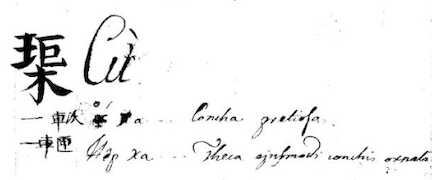 Cừ
一 車 xa ... Concha pretiosa.
一 車匣 Hộp xa ... Theca ejusmodi conchis ornata